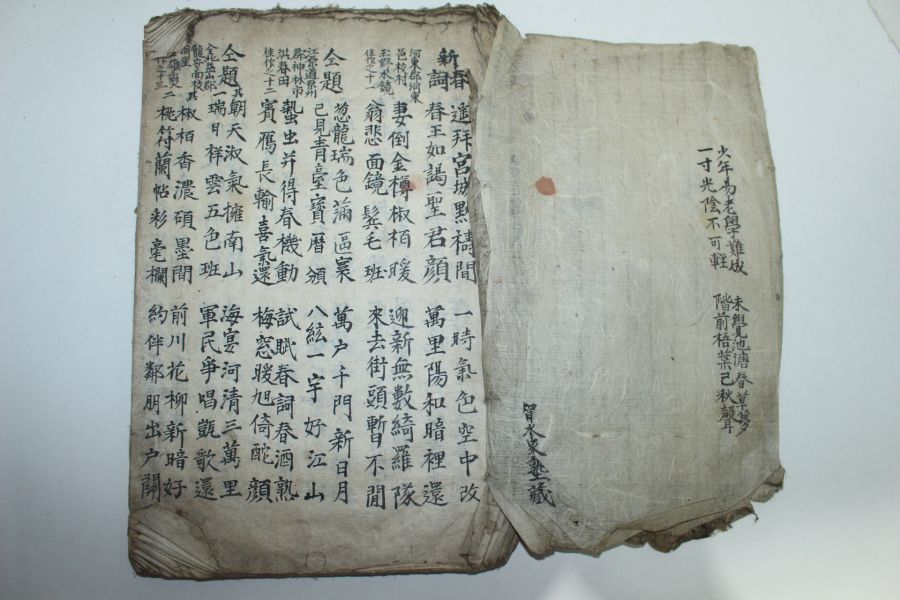 少年易老學難成 未覺池塘春草夢
一寸光陰不可輕 階前梧葉已秋聲
水東塾藏
新春詞
遥拜宮城黙禱間 一時氣色空中改
春王如謁聖君顔 萬里陽和暗裡還
河東郡河東
邑校村
玉野水鏡
佳作之十一
妻倒金樽椒栢暖 迎新無數綺羅隊
翁悲面鏡鬓毛班 來去街頭暫不閒
仝題
江原道原州
郡神林市
洪春田
佳作之十二
忽龍瑞色蒲區寰 萬户千門新日月
已見青臺寶曆頒 八紘一宇好江山
蟄虫并得春機動 試賦春詞春酒熟
賓鴈長輸喜氣還 梅窓暖旭倚酡顔
仝題
全北益山郡
龍安面校
佳作之十三
其一
朝天淑氣擁南山 海宴河清三萬里
瑞日祥雲五色班 軍民爭唱凱歌還
其二
椒栢香濃碩墨間 前川花柳新暗好
桃符蘭帖彩毫欄 約伴鄰朋出户關